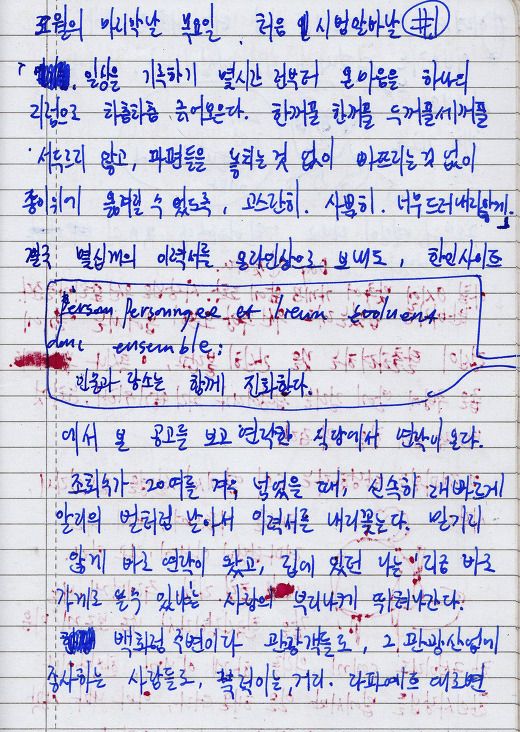 요일 처음 #1
일상을 기록하기 몇시간 전부터 온 마음을 하나의
차츰차츰 긁어모은다. 한꺼풀 한꺼풀 두꺼풀 세꺼풀
서두르지 않고, 파편들을 놓치는 것 없이 빠뜨리는 것 없이
종이위에 옮겨질 수 있도록, 고스란히. 사뿐히. 너무 드러내지 않게.
결국 몇십개의 이력서를 온라인상으로 보내도, 한인사이트
Personnages et lieux évoluent
donc ensemble;
인물과 장소는 함께 진화한다.
에서 본 공고를 보고 연락한 식당에서 연락이 온다.
조회수가 20여를 넘었을 때, 신속히 재빠르게
알리의 벌처럼 날아서 이력서를 내리꽂는다. 믿기지
않게 바로 연락이 왔고, 집에 있던 나는 지금 바로
가게로 올 수 있냐는 사장의 부리나케 뛰쳐나간다.
백화점 주변이라 관광객들로, 그 관광산업에
종사하는 사람들로, 북적이는 거리. 라파예트 대로변